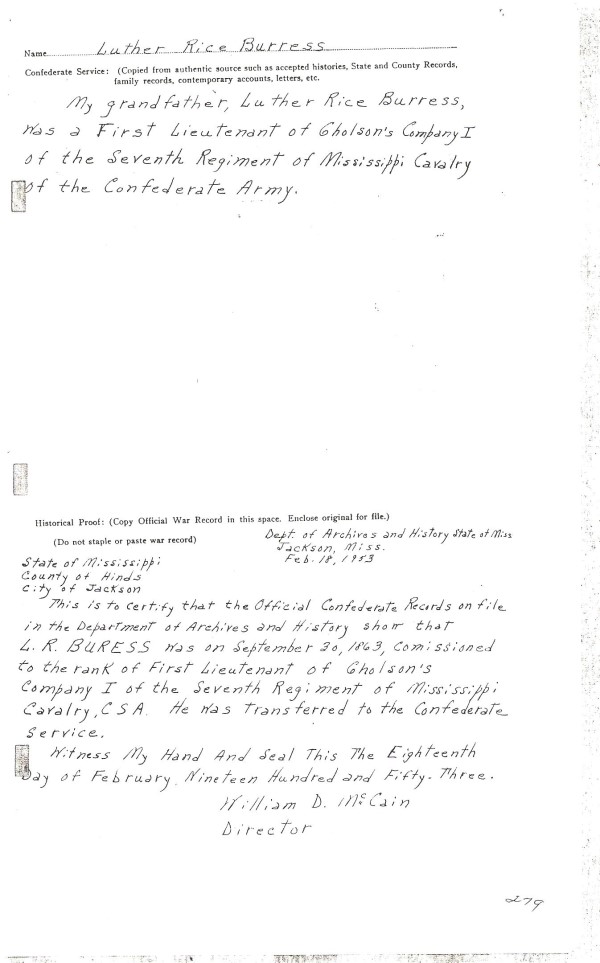 Name Luther Rice Burress
Confederate Service: (Copied from authentic source such as accepted histories, State and County Records,
family records, contemporary accounts, letters, etc.
My grandfather, Luther Rice Burress,
was a First Lieutenant of Gholson's Company I
of the Seventh Regiment of Mississippi Cavalry
of the Confederate Army.
Historical Proof: (Copy Official War Record in this space. Enclose original for file.)
(Do not staple or paste war record)
Dept. of Archives and History State of Miss
Jackson, Miss.
Feb. 18, 1953
State of Mississippi
County of Hinds
City of Jackson
This is to certify that the Official Confederate Records on file
in the Department of Archives and History show that
L. R. BURESS was on September 30, 1863, Comissioned
to the rank of First Lieutenant of Gholson's
Company I of the Seventh Regiment of Mississippi
Cavalry, CSA. He was transferred to the Confederate
Service.
Witness My Hand And Seal This The Eighteenth
Day of February Nineteen Hundred and Fifty-Three.
William D. McCain
Director
279